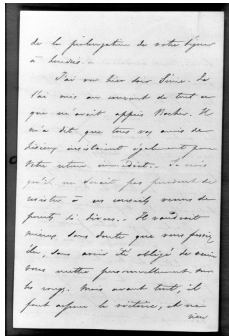 de la prolongation de votre séjour
à Londres.
J'ai vu hier soir Sime. Je
l'ai mis au courant de tout ce
que m'avait appris Rocher. Il
m'a dit que tous vos amis de
insistaient également pour
votre retour immédiat. Je crois
qu'il ne serait pas prudent de
résister à ces conseils venus de
points si divers. Il vaudrait
mieux sans doute que vous puissiez
sans avoir été obligé de
vous mettre personnellement sur
les rangs. Mais avant tout, il
faut assurer la victoire, et ne
rien